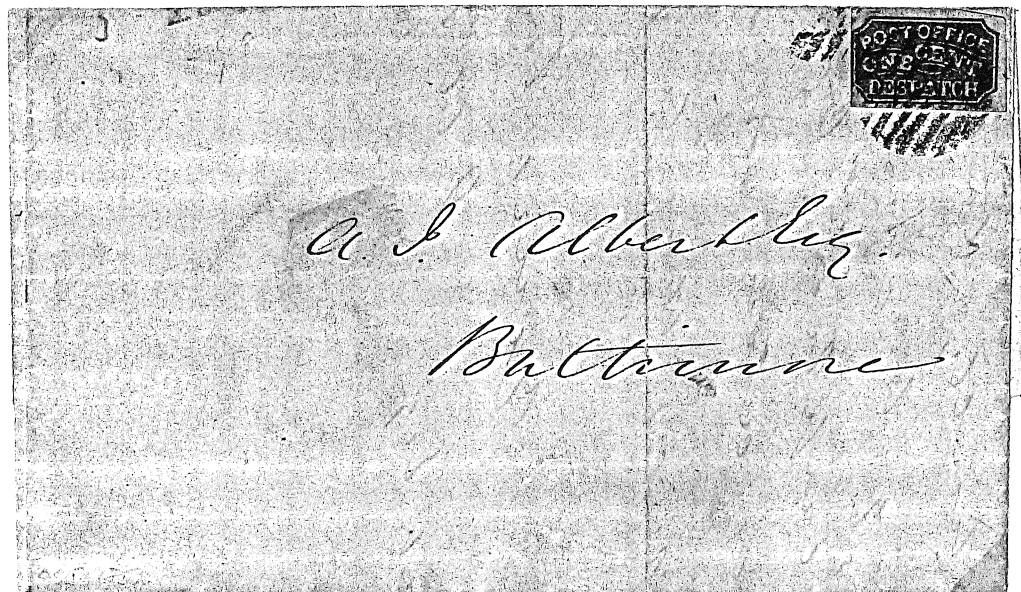 POST OFFICE
ONE CENT
DESPATCH
A. J. Albert Esq.
Baltimore